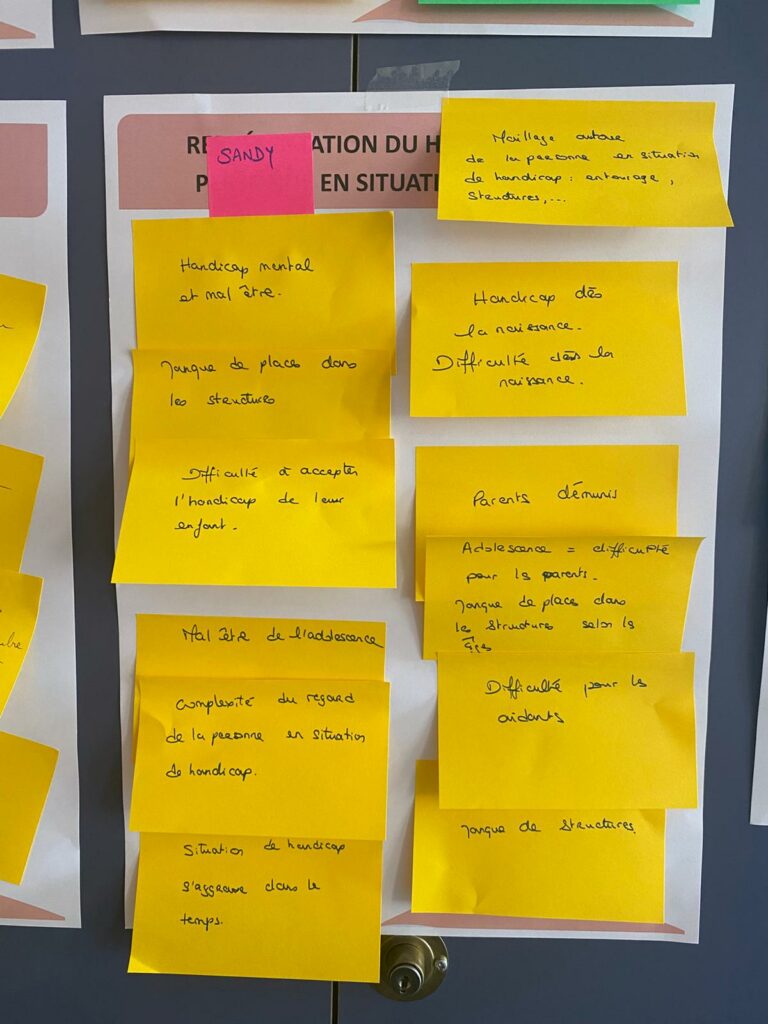 SANDY
ATION DU H
EN SITUATI
Maillage autour
de la personne en situation
de handicap : entourage,
structures,...
Handicap mental
et mal être.
Manque de places dans
les structures
Difficulté à accepter
l'handicap de leur
enfant.
Mal être de l'adolescence
Complexité du regard
de la personne en situation
de handicap.
Situation de handicap
s'aggrave dans le
temps.
Handicap dès
la naissance.
Difficulté dès la
naissance.
Parents démunis
Adolescence = difficulté
pour les parents.
Manque de place dans
les structures selon les
âges
Difficulté pour les
aidants
Manque de structures